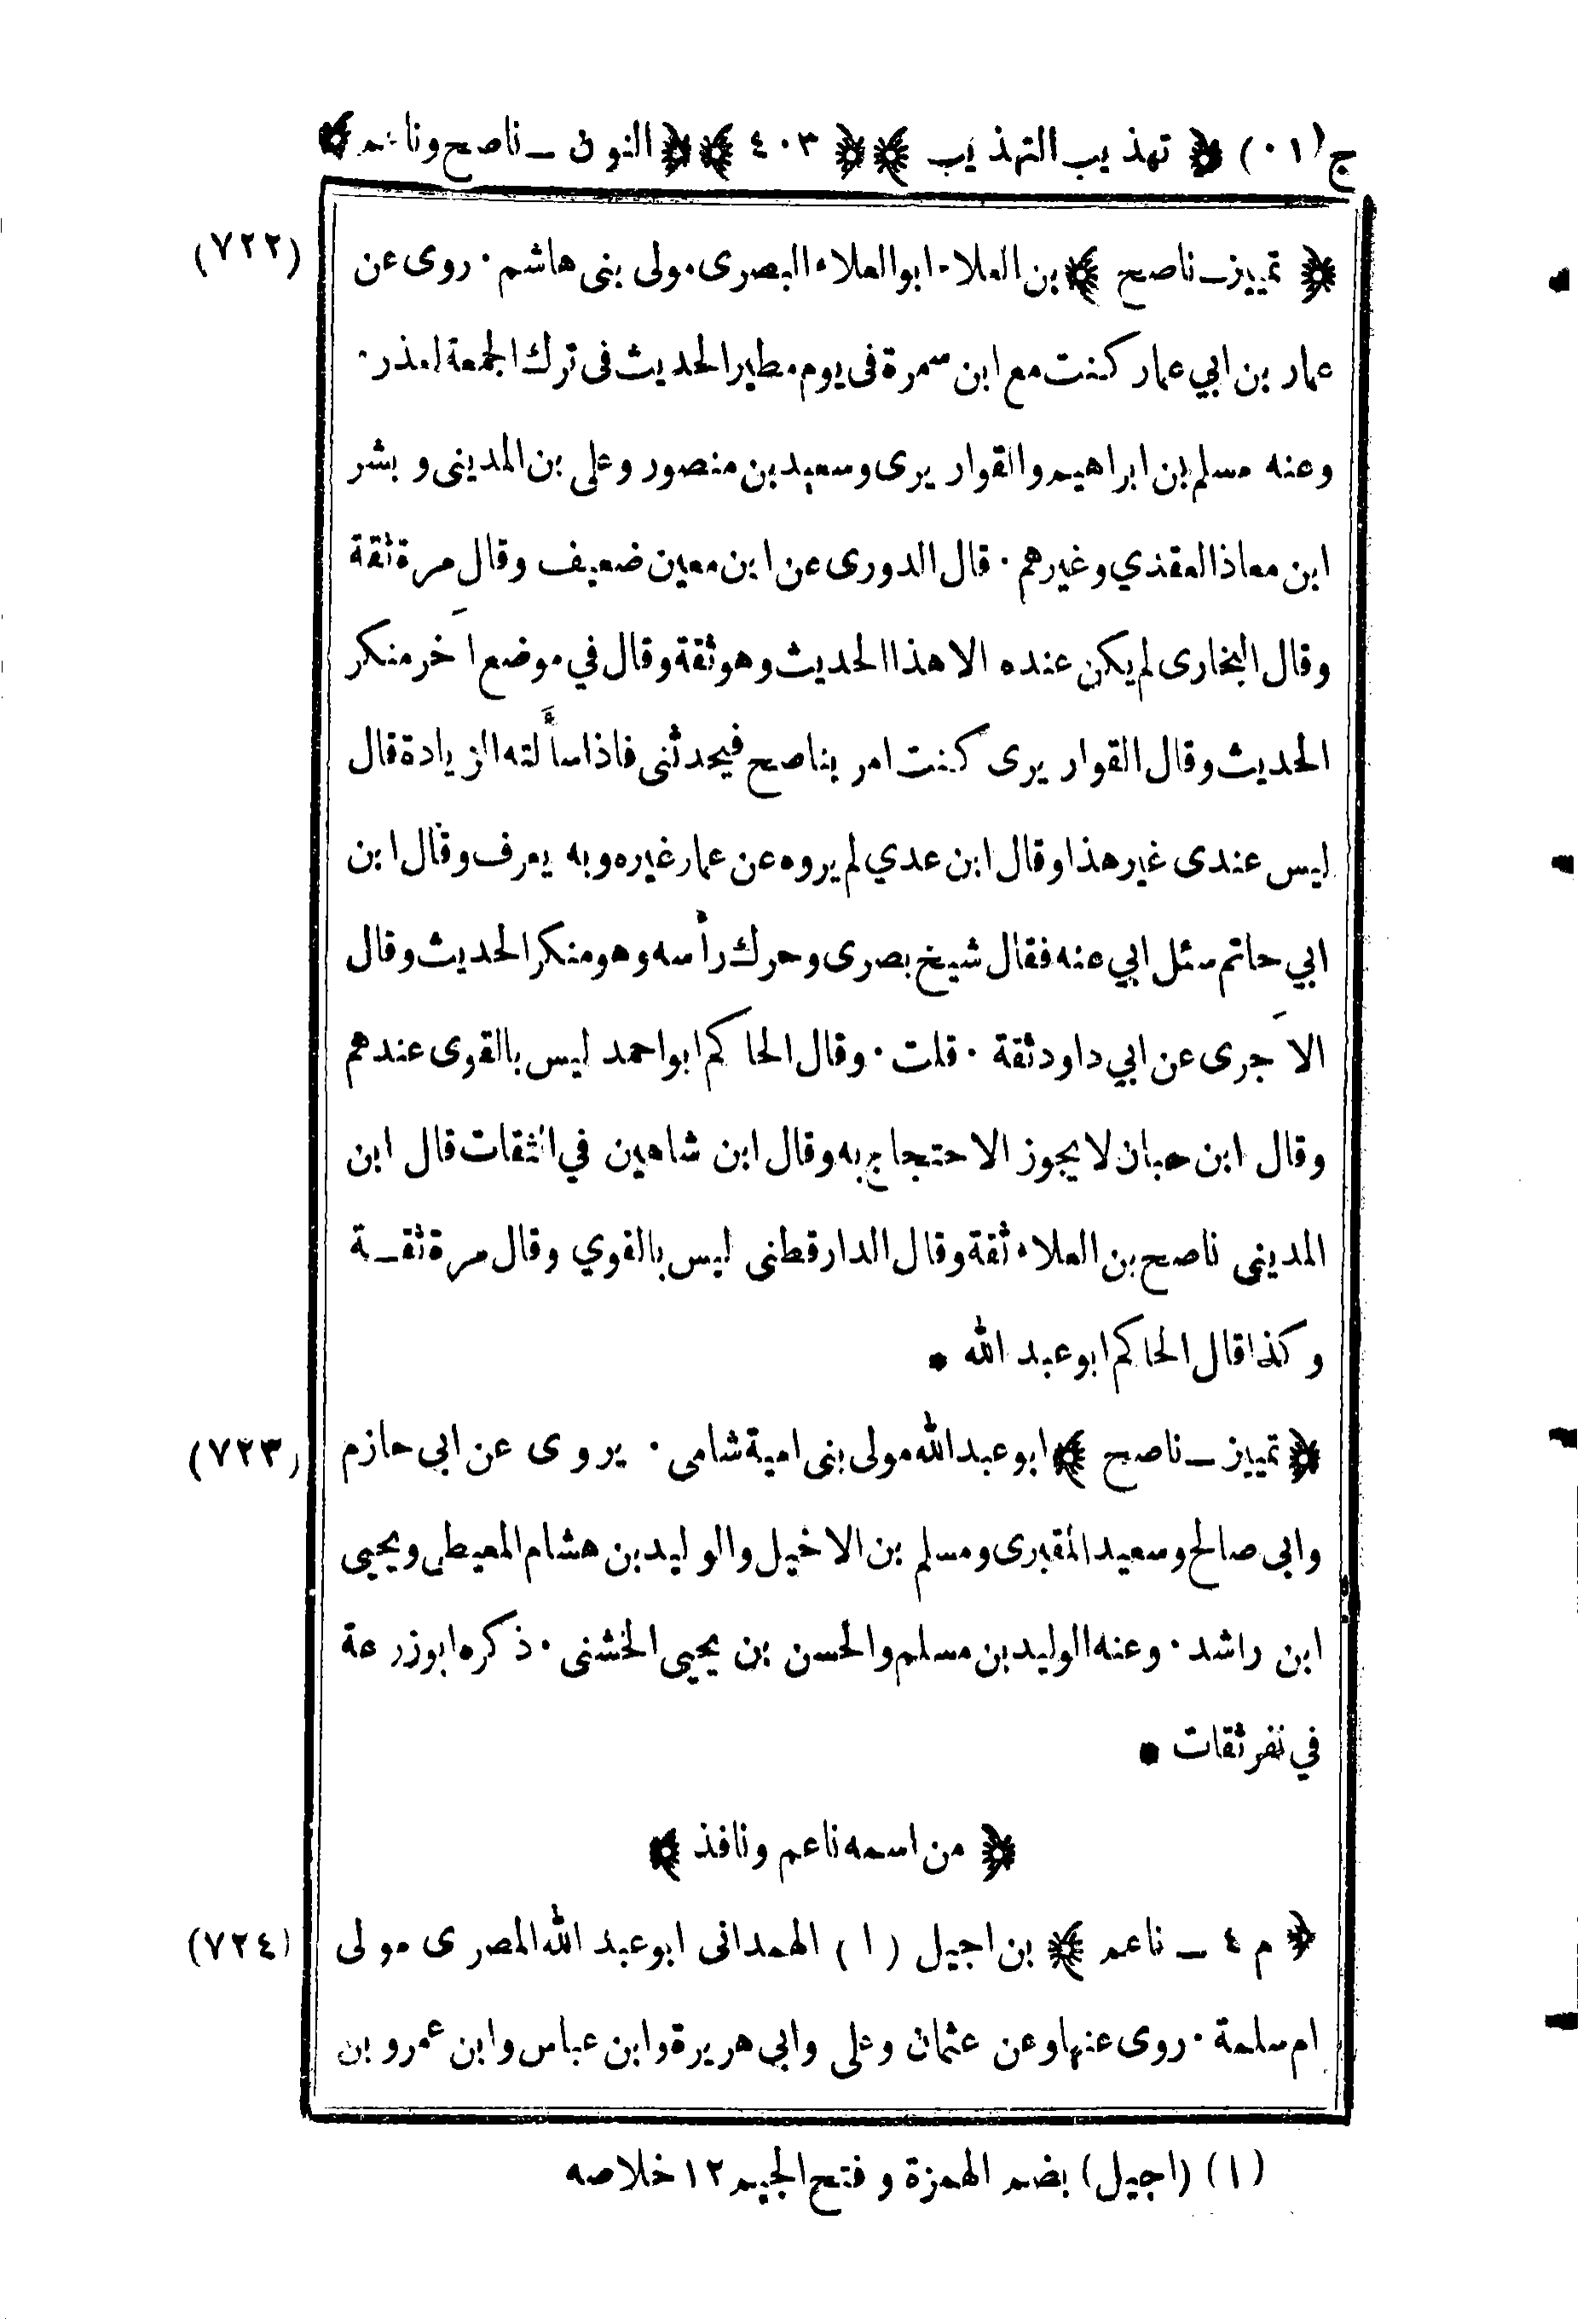 ج (١٠) ﴿ تهذيب التهذيب ﴾ ﴿ ٤٠٣ ﴾ ﴿ النون ــ ناصح وناعم ﴾
(٧٢٢) ﴿ تمييز ــ ناصح ﴾ بن العلاء ابو العلاء البصرى مولى بنى هاشم · روى عن
عمار بن ابي عمار كنت مع ابن سمرة فى يوم مطير الحديث فى ترك الجمعة لعذر ·
وعنه مسلم بن ابراهيم والقواريرى وسعيد بن منصور وعلى بن المدينى وبشر
ابن معاذ العقدي وغيرهم · قال الدورى عن ابن معين ضعيف وقال مرة ثقة
وقال البخارى لم يكن عنده الا هذا الحديث وهو ثقة وقال في موضع آخر منكر
الحديث وقال القواريرى كنت امر بناصح فيحدثنى فاذا سألته الزيادة قال
ليس عندى غير هذا وقال ابن عدي لم يروه عن عمار غيره وبه يعرف وقال ابن
ابي حاتم سئل ابي عنه فقال شيخ بصرى وحرك رأسه وهو منكر الحديث وقال
الآجرى عن ابي داود ثقة · قلت · وقال الحاكم ابو احمد ليس بالقوى عندهم
وقال ابن حبان لا يجوز الاحتجاج به وقال ابن شاهين في الثقات قال ابن
المدينى ناصح بن العلاء ثقة وقال الدارقطنى ليس بالقوي وقال مرة ثقــة
وكذا قال الحاكم ابو عبد الله •
(٧٢٣) ﴿ تمييز ــ ناصح ﴾ ابو عبد الله مولى بنى امية شامى · يروى عن ابى حازم
وابى صالح وسعيد المقبرى ومسلم بن الاخيل والوليد بن هشام المعيطى ويحيى
ابن راشد · وعنه الوليد بن مسلم والحسن بن يحيى الخشنى · ذكره ابو زرعة
في نفر ثقات •
﴿ من اسمه ناعم ونافذ ﴾
(٧٢٤) ﴿ م ٤ ــ ناعم ﴾ بن اجيل (١) الهمدانى ابو عبد الله المصرى مولى
ام سلمة · روى عنها وعن عثمان وعلى وابى هريرة وابن عباس وابن عمرو بن
(١) (اجيل) بضم الهمزة وفتح الجيم ١٢ خلاصه